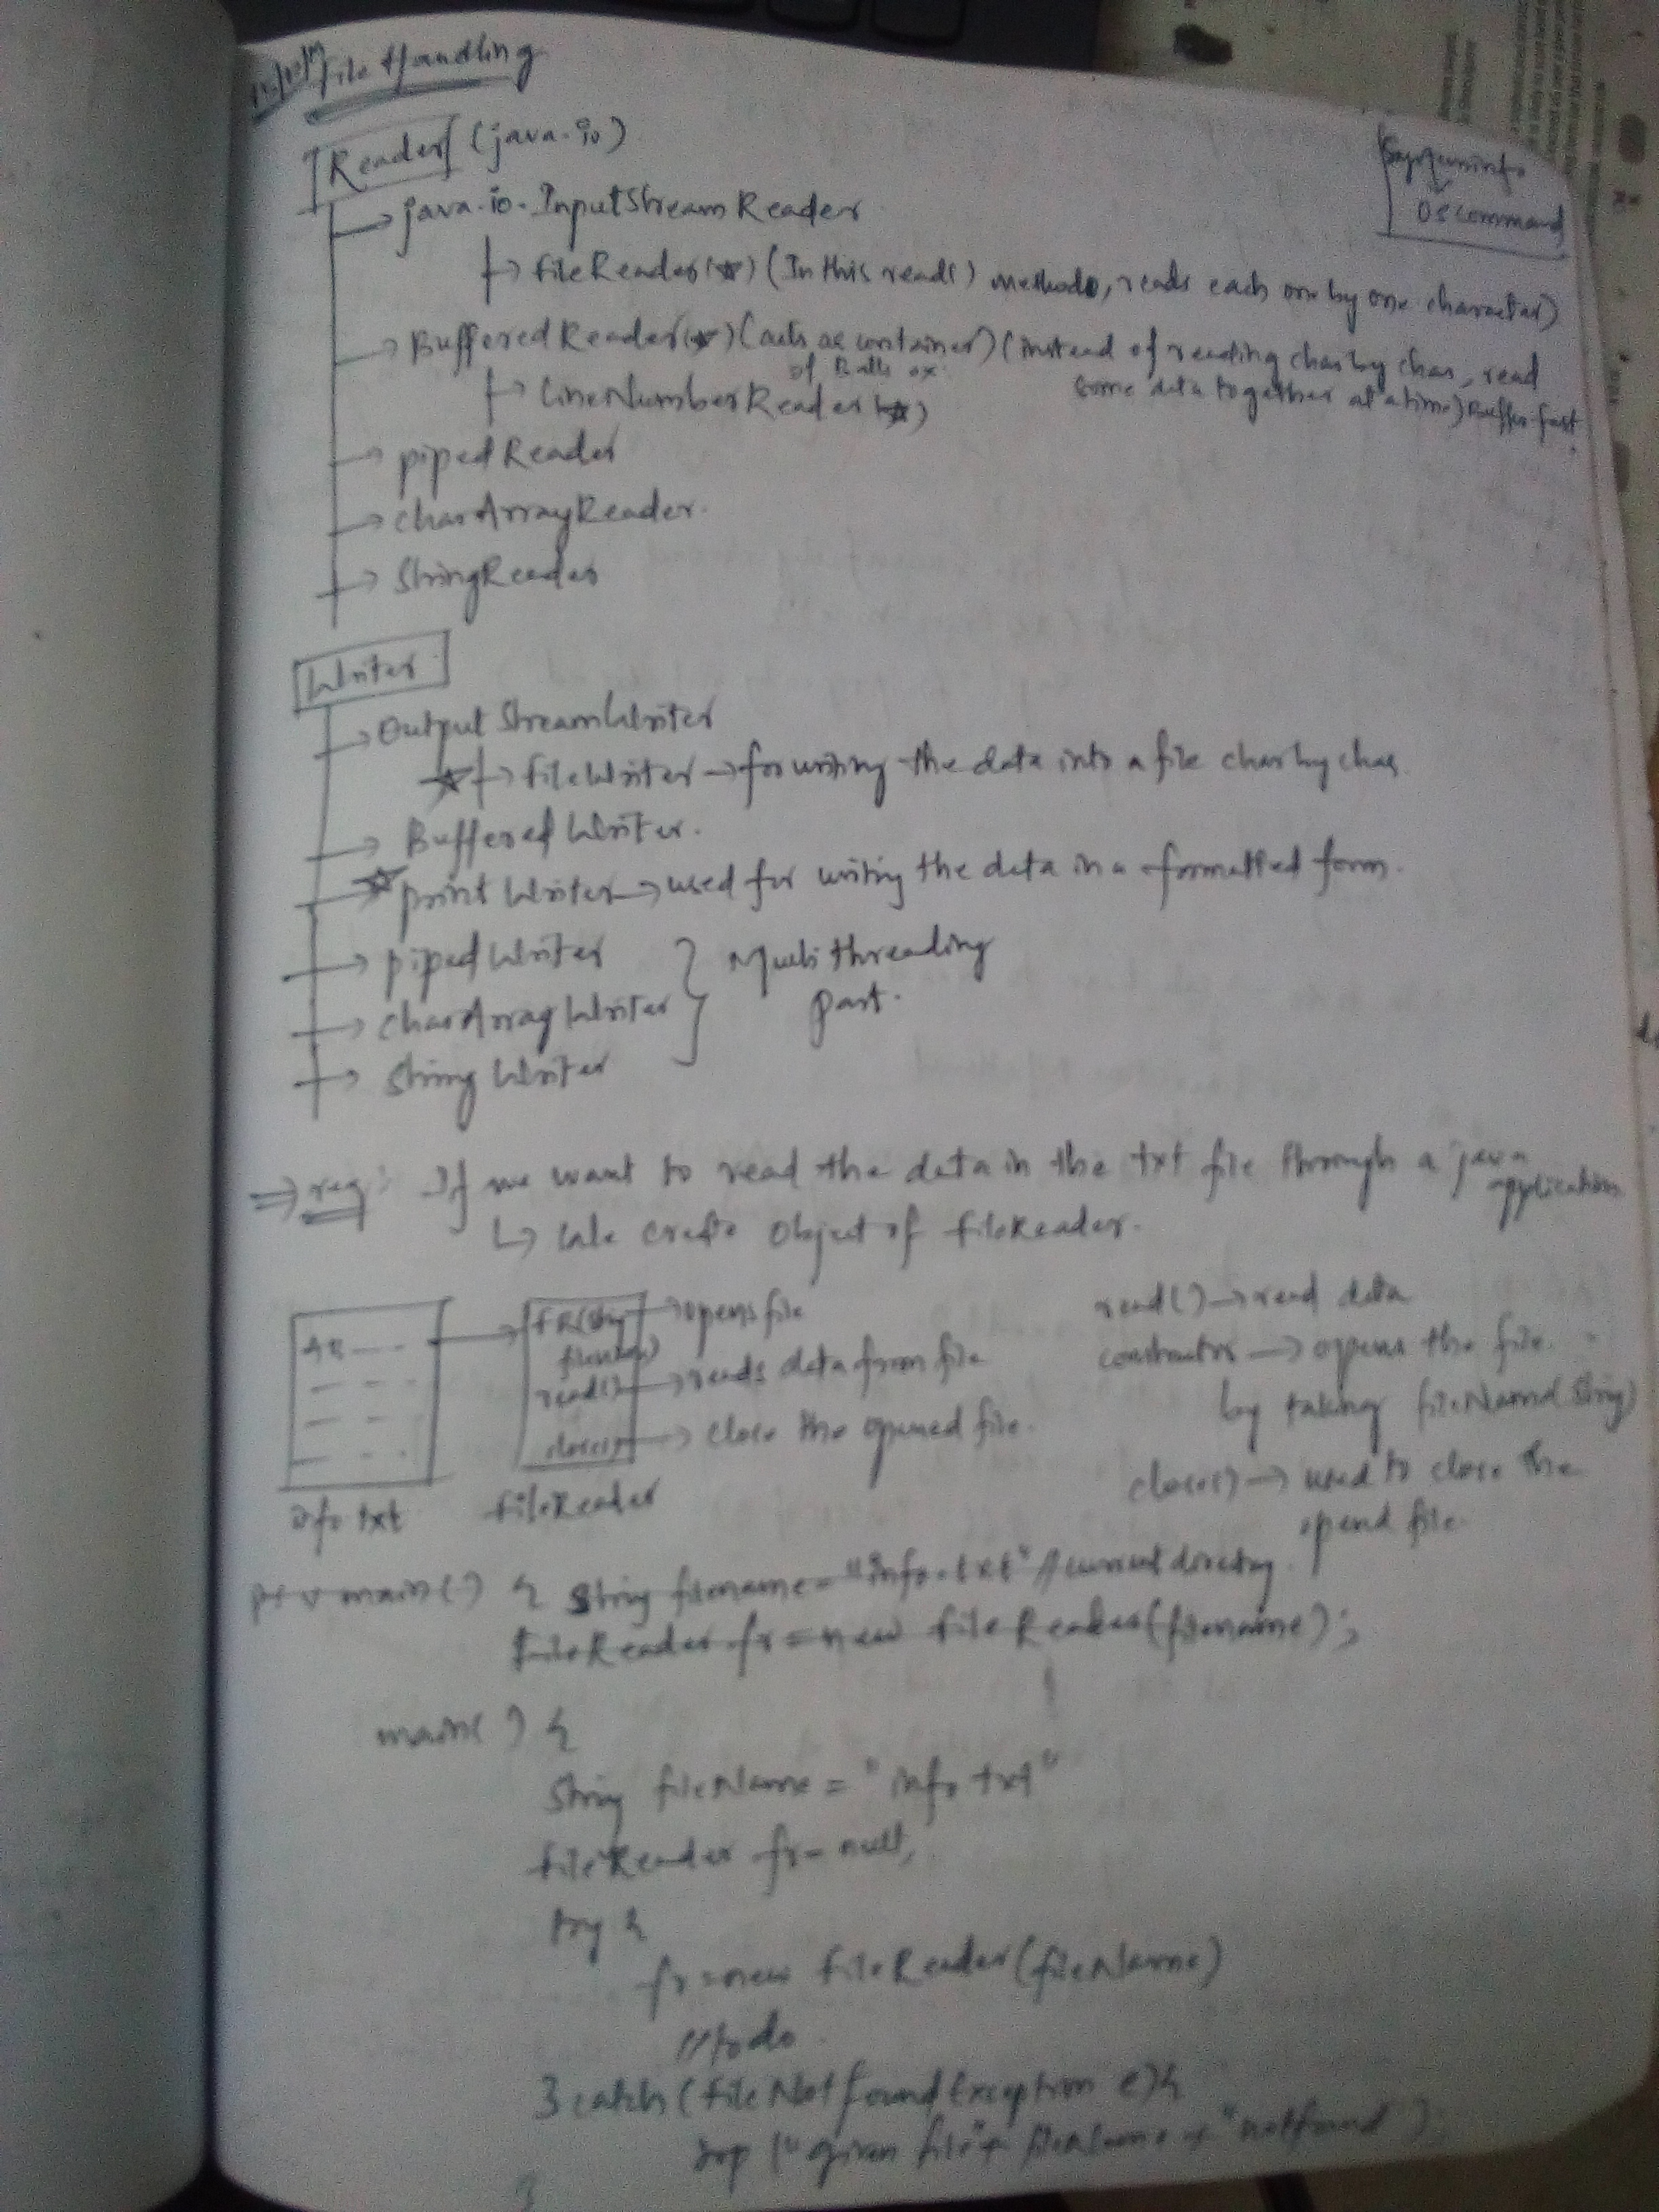 File Handling
Reader (java.io)
OS command
java.io.InputStreamReader
FileReader(☆) (In this read() method, reads each one by one character)
BufferedReader(☆) (acts as container) (instead of reading char by char, read
of Balls ex
some data together at a time) Buffer fast.
LineNumberReader(☆)
pipedReader
charArrayReader.
StringReader
Writer
OutputStreamWriter
☆ FileWriter → for writing the data into a file char by char
Buffered Writer.
☆ print Writer → used for writing the data in a formatted form.
piped Writer } Multi threading
charArray Writer part.
String Writer
⇒ req: If we want to read the data in the txt file through a java
application
create Object of FileReader.
FR(String → opens file
filename)
read() → reads data from file
close() → close the opened file.
info txt FileReader
read() → read data
constructor → opens the file
by taking fileName(String)
close() → used to close the
opend file.
main() { String filename = "info.txt" // current directory.
FileReader fr = new FileReader(filename);
main( ) {
String fileName = "info txt"
FileReader fr = null,
try {
fr = new FileReader(fileName)
// to do
} catch (FileNotFoundException e) {
sop ("given file" + fileName + "not found );
}